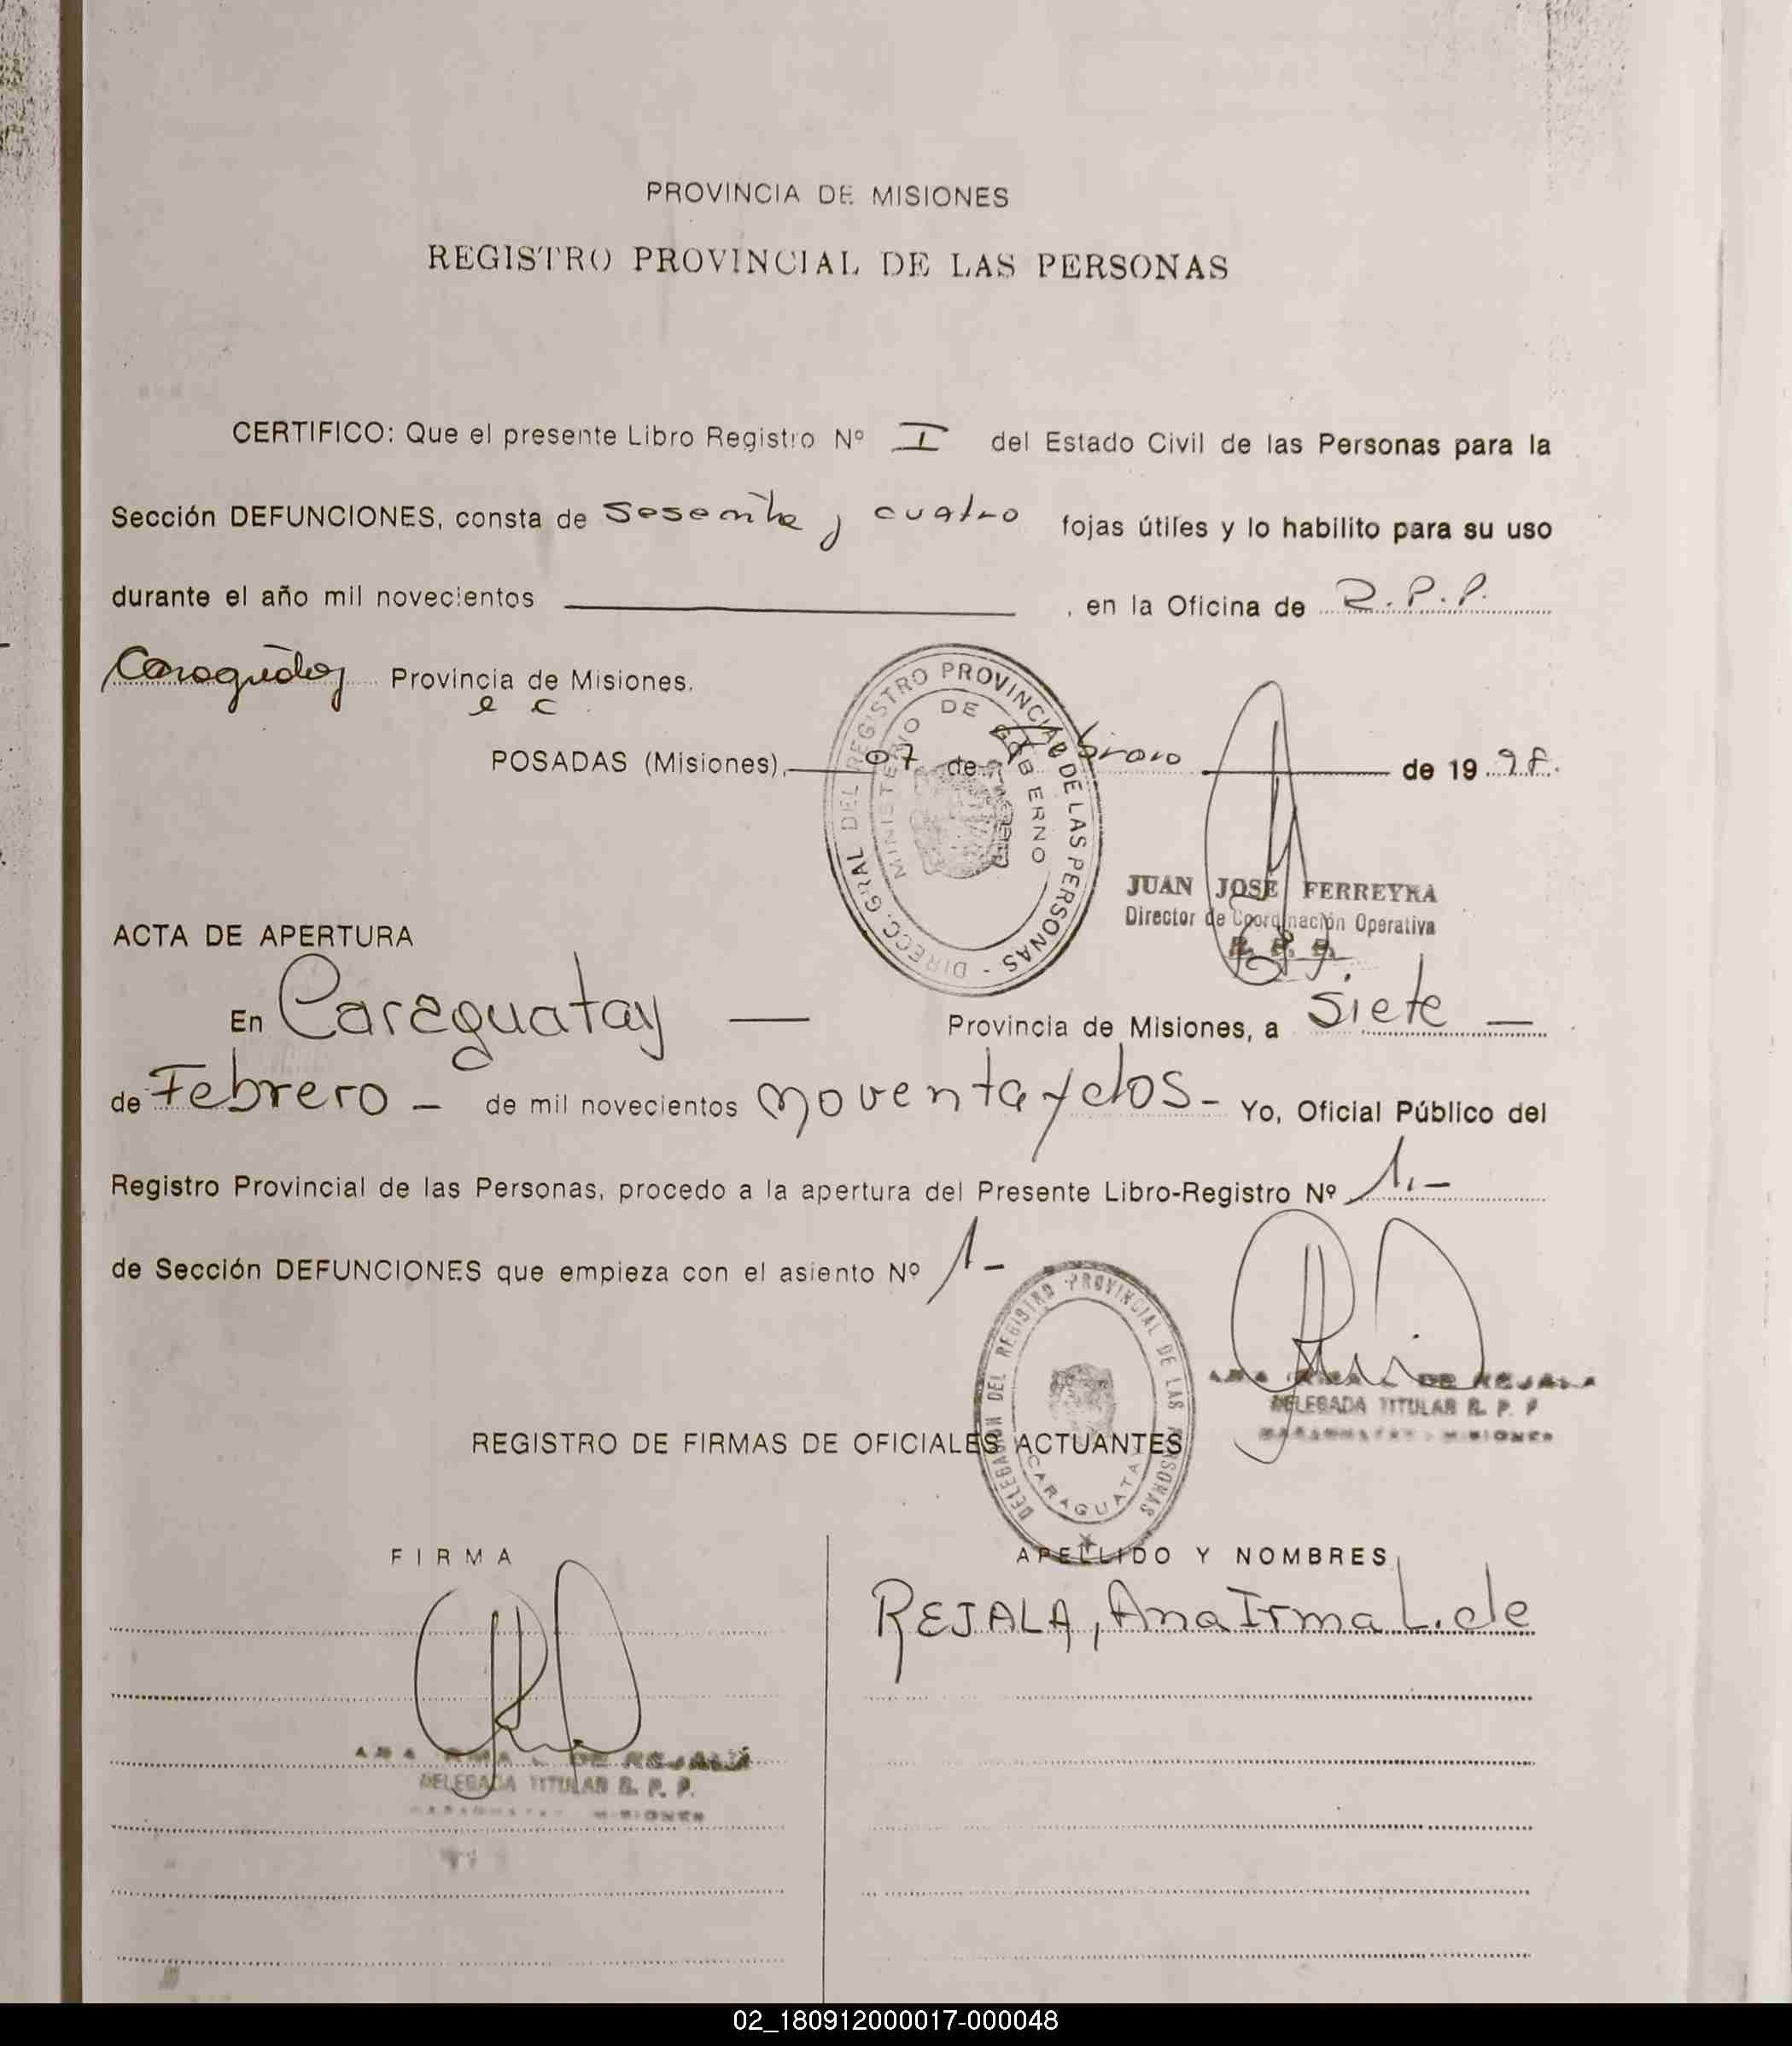 PROVINCIA DE MISIONES
REGISTRO PROVINCIAL DE LAS PERSONAS
CERTIFICO: Que el presente Libro Registro Nº I del Estado Civil de las Personas para la
Sección DEFUNCIONES, consta de Sesenta y cuatro fojas útiles y lo habilito para su uso
durante el año mil novecientos , en la Oficina de R.P.P.
Provincia de Misiones.
POSADAS (Misiones), 07 de de 19
DIRECC. GRAL DEL REGISTRO PROVINCIAL DE LAS PERSONAS -
MINISTERIO DE GOBIERNO
JUAN JOSE FERREYRA
Director de Coordinación Operativa
R. P. P.
ACTA DE APERTURA
En Caraguatay — Provincia de Misiones, a siete —
de Febrero - de mil novecientos noventa y dos - Yo, Oficial Público del
Registro Provincial de las Personas, procedo a la apertura del Presente Libro-Registro Nº 1.-
de Sección DEFUNCIONES que empieza con el asiento Nº 1-
DELEGACION DEL REGISTRO PROVINCIAL DE LAS PERSONAS
CARAGUATAY
ANA IRMA L. DE REJALA
DELEGADA TITULAR R. P. P.
CARAGUATAY - MISIONES
REGISTRO DE FIRMAS DE OFICIALES ACTUANTES
FIRMA APELLIDO Y NOMBRES
REJALA, Ana Irma L. de
ANA IRMA L. DE REJALA
DELEGADA TITULAR R. P. P.
CARAGUATAY - MISIONES
02_180912000017-000048